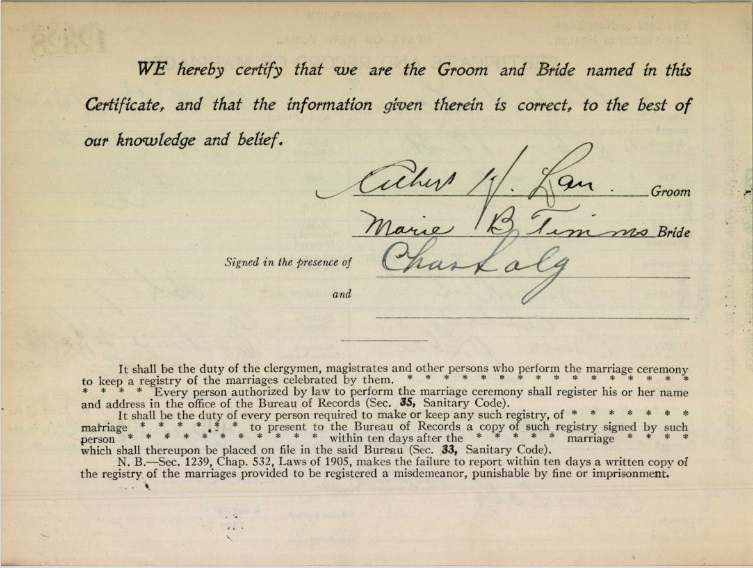 WE hereby certify that we are the Groom and Bride named in this
Certificate, and that the information given therein is correct, to the best of
our knowledge and belief.
Albert H. Lau. Groom
Marie B Timms Bride
Signed in the presence of Chas
and
It shall be the duty of the clergymen, magistrates and other persons who perform the marriage ceremony
to keep a registry of the marriages celebrated by them. * * * * * * * * * * * * * * * *
* * * * Every person authorized by law to perform the marriage ceremony shall register his or her name
and address in the office of the Bureau of Records (Sec. 35, Sanitary Code).
It shall be the duty of every person required to make or keep any such registry, of * * * * * * *
marriage * * * * * * to present to the Bureau of Records a copy of such registry signed by such
person * * * * * * * * * * * within ten days after the * * * * * marriage * * * *
which shall thereupon be placed on file in the said Bureau (Sec. 33, Sanitary Code).
N. B.—Sec. 1239, Chap. 532, Laws of 1905, makes the failure to report within ten days a written copy of
the registry of the marriages provided to be registered a misdemeanor, punishable by fine or imprisonment.